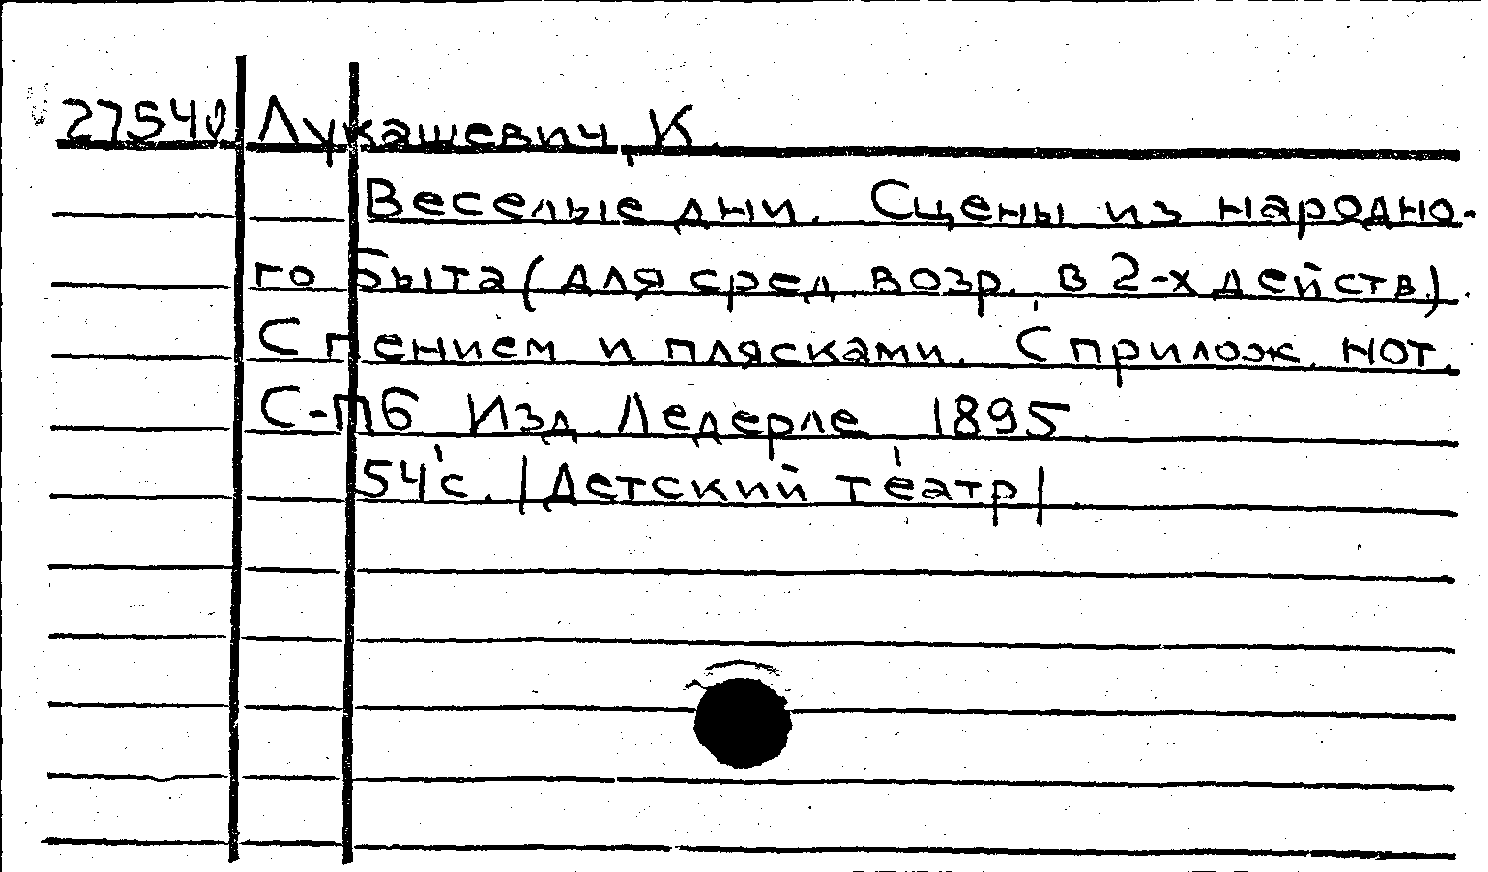 27540 Лукашевич, К.
Веселые дни. Сцены из народно-
го быта (для сред. возр. в 2-х действ.).
С пением и плясками. С прилож. нот.
С-Пб Изд. Ледерле 1895
54 с. |Детский театр|